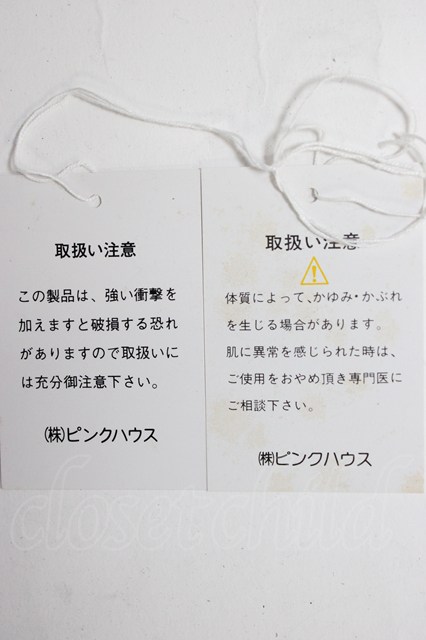 取扱い注意
この製品は、強い衝撃を
加えますと破損する恐れ
がありますので取扱いに
は充分御注意下さい。
(株)ピンクハウス
取扱い注意
体質によって、かゆみ・かぶれ
を生じる場合があります。
肌に異常を感じられた時は、
ご使用をおやめ頂き専門医に
ご相談下さい。
(株)ピンクハウス
closet child